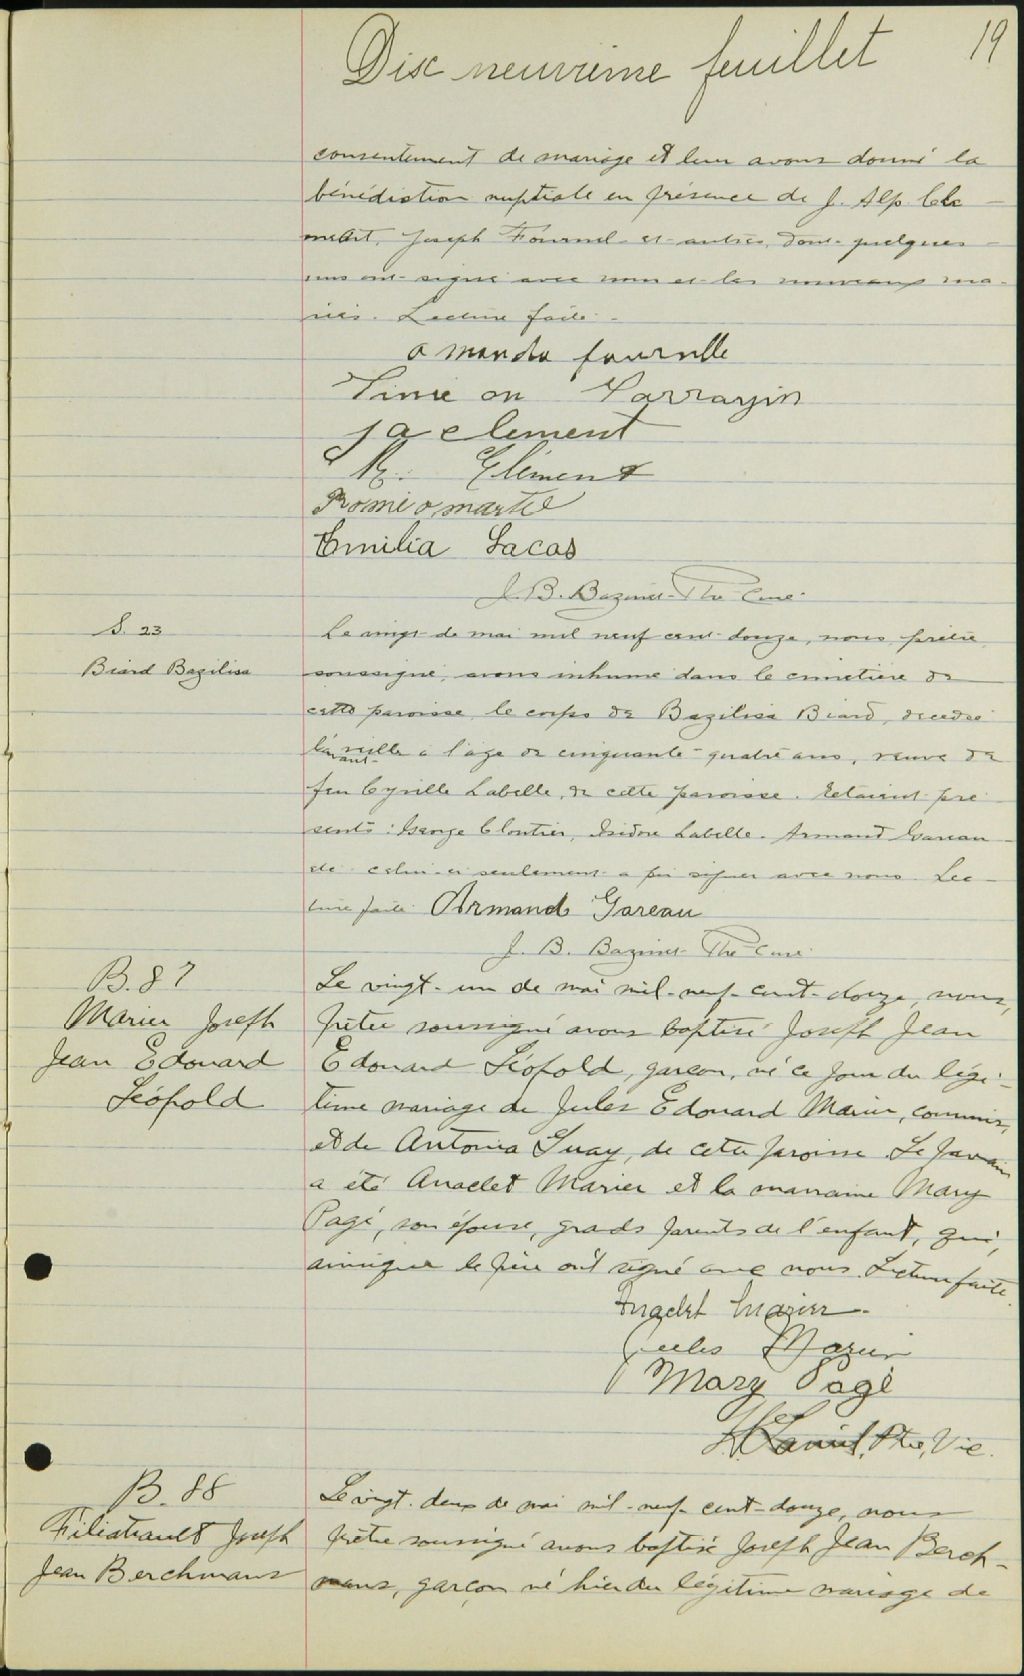 19
Dix neuvième feuillet
consentement de mariage et leur avons donné la
bénédiction nuptiale en présence de J. Alp. Clé
ment, Joseph Fournel et autres, dont quelques
uns ont signé avec nous et les nouveaux ma-
riés. Lecture faite.
amanda fournelle
Sarrazin
J a clement
R. Clément
Romeo martel
Emilia Lacas
J. B. Bazinet Ptre Curé
S. 23
Biard Bazilisa
Le vingt de mai mil neuf cent douze, nous prêtre
soussigné, avons inhumé dans le cimetière de
cette paroisse le corps de Bazilisa Biard, décédée
l'avant-veille à l'âge de cinquante-quatre ans, veuve de
feu Cyrille Labelle, de cette paroisse. Etaient pré
sents: George Cloutier, Isidore Labelle, Armand Gareau
etc. celui-ci seulement a pu signer avec nous. Lec-
ture faite. Armand Gareau
J. B. Bazinet Ptre Curé
B. 87
Marier Joseph
Jean Edouard
Léopold
Le vingt-un de mai mil-neuf-cent-douze, nous,
prêtre soussigné avons baptisé Joseph Jean
Edouard Léopold, garçon, né ce jour du légi-
time mariage de Jules Edouard Marier, commis,
et de Antonia Guay, de cette paroisse. Le parrain
a été Anaclet Marier et la marraine Mary
Pagé, son épouse, grads parents de l'enfant, qui,
ainsique le père ont signé avec nous. Lecture faite.
Anaclet Marier
Jules Marier
Mary Pagé
Ptre, Vic.
B. 88
Filiatrault Joseph
Jean Berchmans
Le vingt-deux de mai mil-neuf-cent-douze, nous
prêtre soussigné avons baptisé Joseph Jean Berch-
mans, garçon né hier du légitime mariage de